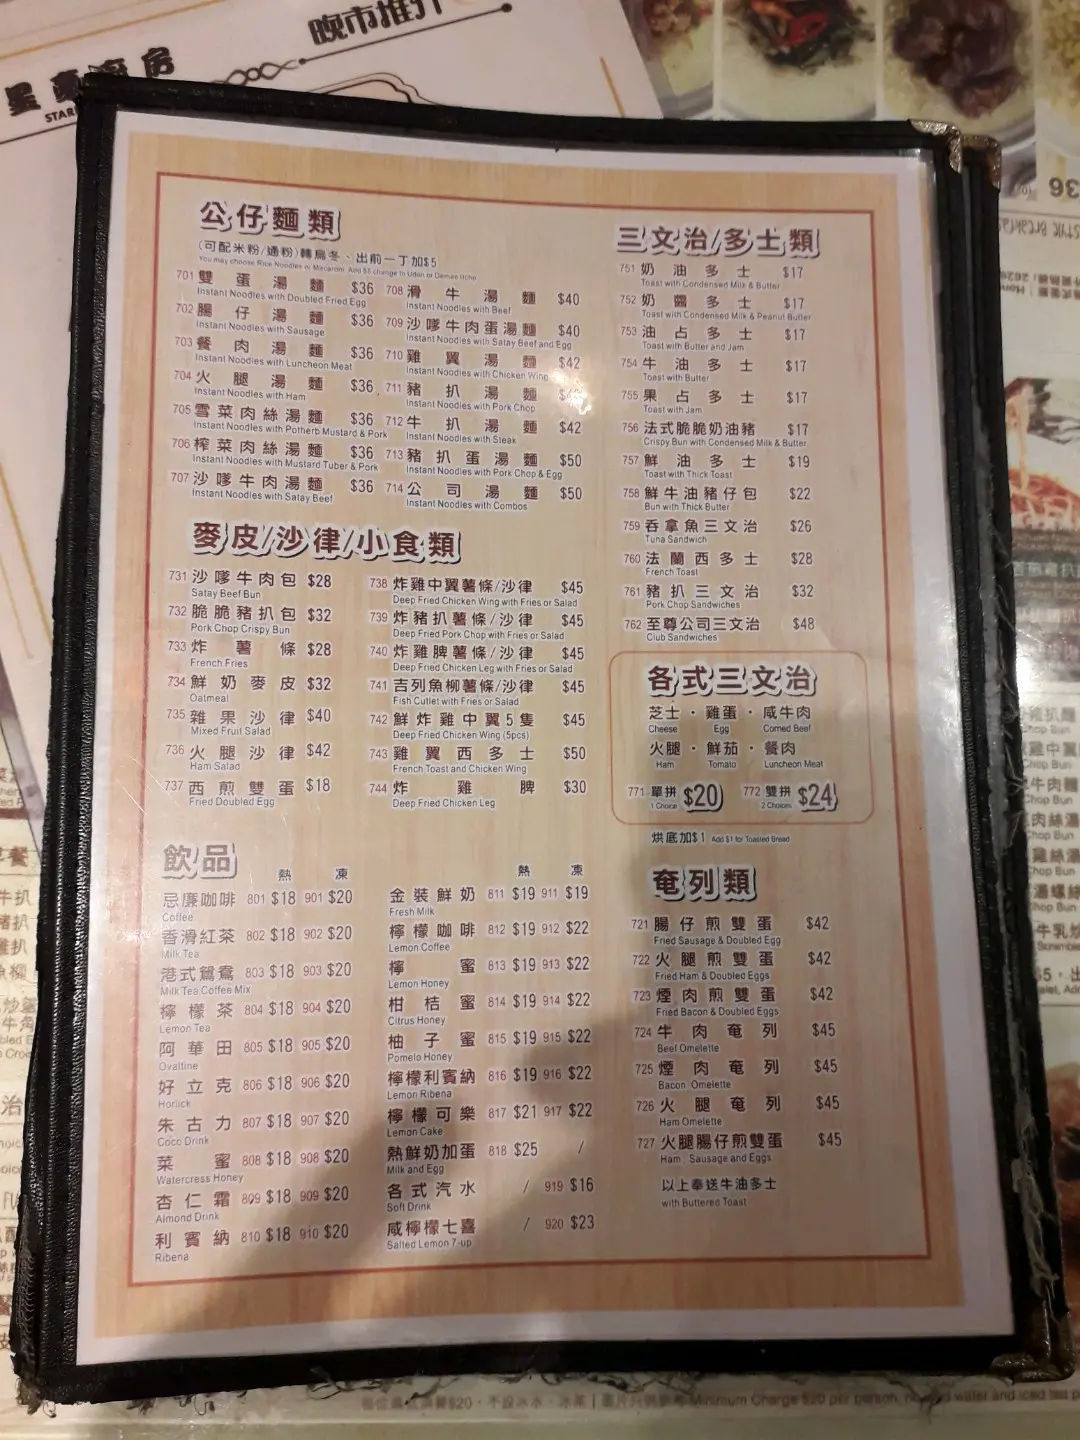 晚市推介
星 房
公仔麵類
(可配米粉/通粉)轉烏冬、出前一丁加$5
You may choose Rice Noodles or Macaroni. Add $5 change to Udon or Demae Itcho
701 雙蛋湯麵 $36
Instant Noodles with Doubled Fried Egg
702 腸仔湯麵 $36
Instant Noodles with Sausage
703 餐肉湯麵 $36
Instant Noodles with Luncheon Meat
704 火腿湯麵 $36
Instant Noodles with Ham
705 雪菜肉絲湯麵 $36
Instant Noodles with Potherb Mustard & Pork
706 榨菜肉絲湯麵 $36
Instant Noodles with Mustard Tuber & Pork
707 沙嗲牛肉湯麵 $36
Instant Noodles with Satay Beef
708 滑牛湯麵 $40
Instant Noodles with Beef
709 沙嗲牛肉蛋湯麵 $40
Instant Noodles with Satay Beef and Egg
710 雞翼湯麵 $42
Instant Noodles with Chicken Wing
711 豬扒湯麵
Instant Noodles with Pork Chop
712 牛扒湯麵 $42
Instant Noodles with Steak
713 豬扒蛋湯麵 $50
Instant Noodles with Pork Chop & Egg
714 公司湯麵 $50
Instant Noodles with Combos
麥皮/沙律/小食類
731 沙嗲牛肉包 $28
Satay Beef Bun
732 脆脆豬扒包 $32
Pork Chop Crispy Bun
733 炸薯條 $28
French Fries
734 鮮奶麥皮 $32
Oatmeal
735 雜果沙律 $40
Mixed Fruit Salad
736 火腿沙律 $42
Ham Salad
737 西煎雙蛋 $18
Fried Doubled Egg
738 炸雞中翼薯條/沙律 $45
Deep Fried Chicken Wing with Fries or Salad
739 炸豬扒薯條/沙律 $45
Deep Fried Pork Chop with Fries or Salad
740 炸雞脾薯條/沙律 $45
Deep Fried Chicken Leg with Fries or Salad
741 吉列魚柳薯條/沙律 $45
Fish Cutlet with Fries or Salad
742 鮮炸雞中翼5隻 $45
Deep Fried Chicken Wing (5pcs)
743 雞翼西多士 $50
French Toast and Chicken Wing
744 炸雞脾 $30
Deep Fried Chicken Leg
飲品
熱 凍
忌廉咖啡 801 $18 901 $20
Coffee
香滑紅茶 802 $18 902 $20
Milk Tea
港式鴛鴦 803 $18 903 $20
Milk Tea Coffee Mix
檸檬茶 804 $18 904 $20
Lemon Tea
阿華田 805 $18 905 $20
Ovaltine
好立克 806 $18 906 $20
Horlick
朱古力 807 $18 907 $20
Coco Drink
菜蜜 808 $18 908 $20
Watercress Honey
杏仁霜 809 $18 909 $20
Almond Drink
利賓納 810 $18 910 $20
Ribena
熱 凍
金裝鮮奶 811 $19 911 $19
Fresh Milk
檸檬咖啡 812 $19 912 $22
Lemon Coffee
檸蜜 813 $19 913 $22
Lemon Honey
柑桔蜜 814 $19 914 $22
Citrus Honey
柚子蜜 815 $19 915 $22
Pomelo Honey
檸檬利賓納 816 $19 916 $22
Lemon Ribena
檸檬可樂 817 $21 917 $22
Lemon Cake
熱鮮奶加蛋 818 $25 /
Milk and Egg
各式汽水 / 919 $16
Soft Drink
咸檸檬七喜 / 920 $23
Salted Lemon 7-up
三文治/多士類
751 奶油多士 $17
Toast with Condensed Milk & Butter
752 奶醬多士 $17
Toast with Condensed Milk & Peanut Butter
753 油占多士 $17
Toast with Butter and Jam
754 牛油多士 $17
Toast with Butter
755 果占多士 $17
Toast with Jam
756 法式脆脆奶油豬 $17
Crispy Bun with Condensed Milk & Butter
757 鮮油多士 $19
Toast with Thick Toast
758 鮮牛油豬仔包 $22
Bun with Thick Butter
759 吞拿魚三文治 $26
Tuna Sandwich
760 法蘭西多士 $28
French Toast
761 豬扒三文治 $32
Pork Chop Sandwiches
762 至尊公司三文治 $48
Club Sandwiches
各式三文治
芝士・雞蛋・咸牛肉
Cheese Egg Corned Beef
火腿・鮮茄・餐肉
Ham Tomato Luncheon Meat
771 單拼 $20 772 雙拼 $24
1 Choice 2 Choices
烘底加$1 Add $1 for Toasted Bread
奄列類
721 腸仔煎雙蛋 $42
Fried Sausage & Doubled Egg
722 火腿煎雙蛋 $42
Fried Ham & Doubled Eggs
723 煙肉煎雙蛋 $42
Fried Bacon & Doubled Eggs
724 牛肉奄列 $45
Beef Omelette
725 煙肉奄列 $45
Bacon Omelette
726 火腿奄列 $45
Ham Omelette
727 火腿腸仔煎雙蛋 $45
Ham, Sausage and Eggs
以上奉送牛油多士
with Buttered Toast
Minimum Charge $20 per person, water and iced tea